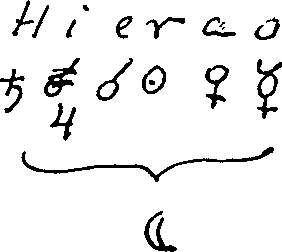 Hierao
♄ ♂ ☉ ♀ ☿
4
☾